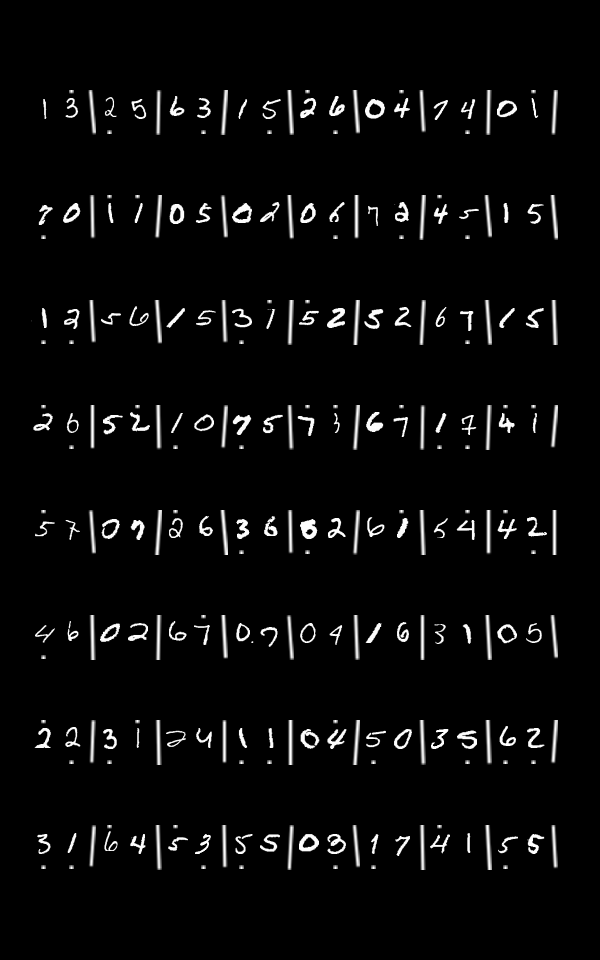 1 3̇ | 2̣ 5 | 6 3̣ | 1 5̣ | 2̇ 6̣ | 0 4̇ | 7 4̣ | 0 1̇ |
7̣ 0 | 1̇ 1̇ | 0 5 | 0 2 | 0 6̣ | 7 2̣ | 4̇ 5̣ | 1 5 |
1̣ 2̣ | 5 6 | 1 5 | 3̣ 1̇ | 5̇ 2 | 5 2 | 6 7̣ | 1 5 |
2̇ 6̣ | 5 2̇ | 1̣ 0 | 7̣ 5 | 7̇ 3̇ | 6 7̇ | 1̣ 7̣ | 4̇ 1̇ |
5̇ 7 | 0 7 | 2̇ 6 | 3̣ 6̣ | 6̣ 2 | 6 1̇ | 5 4 | 4 2̣ |
4̣ 6 | 0 2 | 6 7̇ | 0 7 | 0 4 | 1 6 | 3 1 | 0 5 |
2̇ 2̣ | 3 1̇ | 2 4 | 1̣ 1̣ | 0 4̇ | 5̣ 0 | 3 5̣ | 6̣ 2̣ |
3̣ 1̣ | 6̇ 4 | 5̇ 3̣ | 5̣ 5 | 0 3̣ | 1̣ 7 | 4̇ 1 | 5̣ 5 |